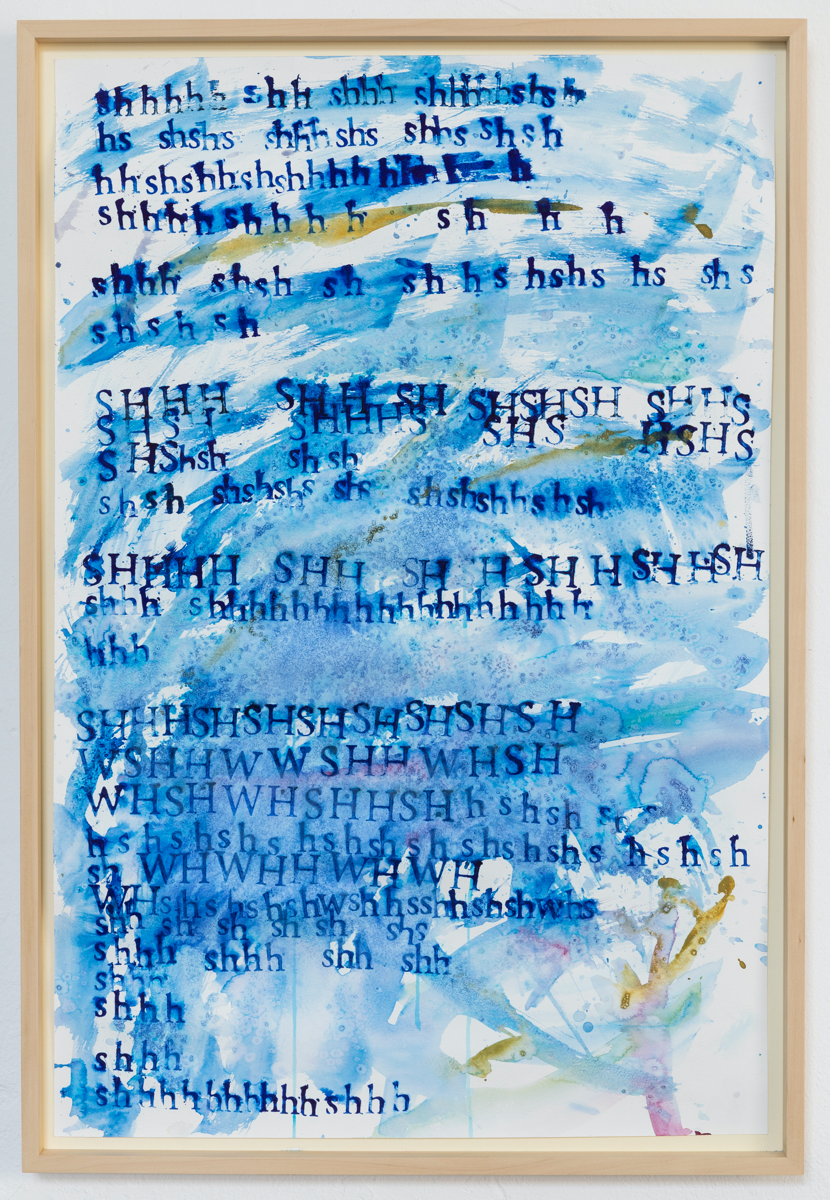 shhhhh shh shhh shhhhhshsh
hs shshs shhhshs shhs shsh
hhshshhshshhhhhhh h h
shhhhshh h h sh h h
shhh shsh sh sh hs hshs hs shs
shshsh
SHHH SHH SH SHSHSH SHHS
SHSH SHHHS SHS HSHS
SHSHsh shsh
shsh shshshs shs shshshhshsh
SHHHH SHH SH H SH H SHHHSH
shhh shhhhhhhhhhhhhhhhh
hhh
SHHHSHSHSHSHSHSHSH
WSHHWWSHHWHSH
WHSHWHSHHSHhshsh
hshshshshshshshshshs hshsh
sh WHWHHWHWH
WHshshshshwshhsshhshshwhs
shh sh sh shsh shs
shhh shhh shh shh
shhh
shhh
shhh
shhhhhhhhhshhh